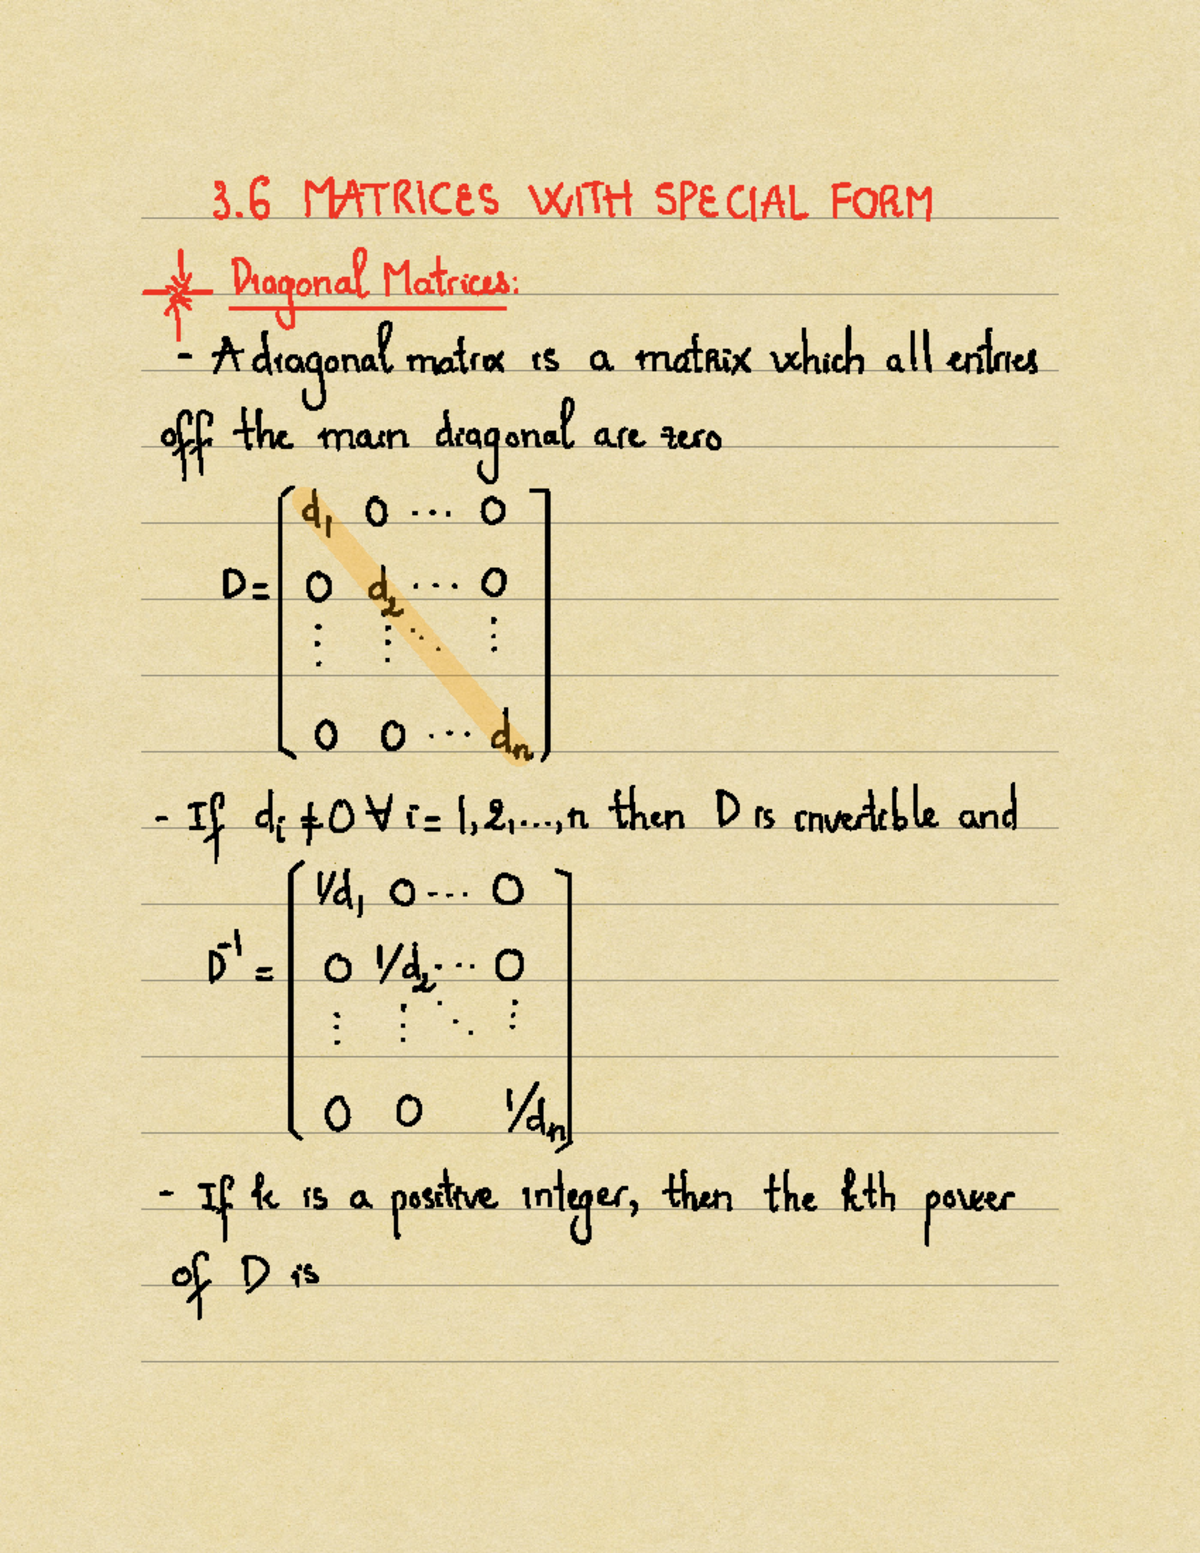 3.6 MATRICES WITH SPECIAL FORM
Diagonal Matrices:
- A diagonal matrix is a matrix which all entries
off the main diagonal are zero
d₁ 0 ... 0
D = 0 d₂ ... 0
⋮ ⋮ ⋱ ⋮
0 0 ... dₙ
- If dᵢ ≠ 0 ∀ i = 1, 2, ..., n then D is invertible and
1/d₁ 0 ... 0
D⁻¹ = 0 1/d₂ ... 0
⋮ ⋮ ⋱ ⋮
0 0 1/dₙ
- If k is a positive integer, then the kth power
of D is